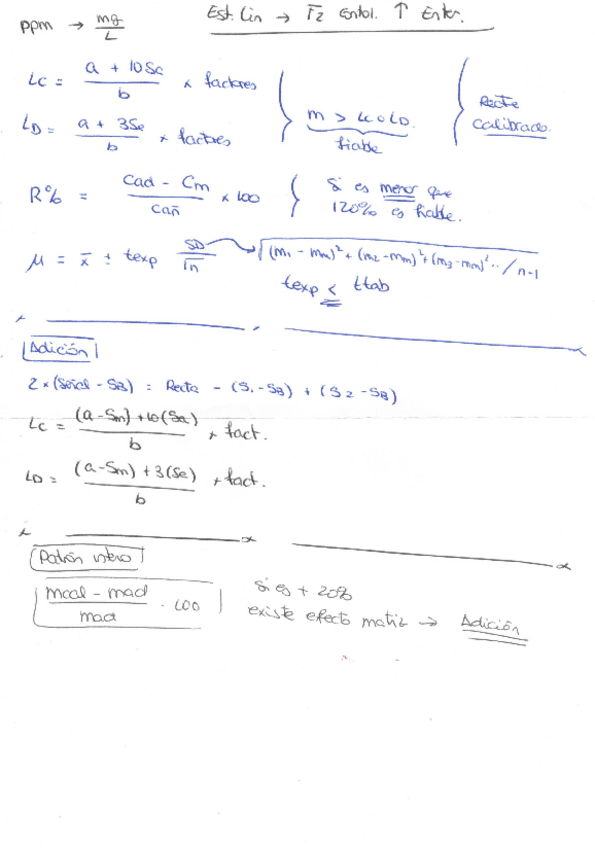 ppm → mg/L
Est. Lin → F2 Entol. ↑ Enter.
LC = (a + 10Se)/b × factores
LD = (a + 3Se)/b × factores
m > LC o LD.
fiable
Recta
Calibrado
R% = (Cad - Cm)/Cañ × 100
Si es menor que
120% es fiable.
μ = x̄ ± texp SD/√n → √(m1 - mm)² + (m2 - mm)² + (m3 - mm)² ... / n-1
texp < ttab
Adición
2 × (Señal - SB) = Recta - (S1 - SB) + (S2 - SB)
LC = ((a - Sm) + 10(Se))/b × fact.
LD = ((a - Sm) + 3(Se))/b × fact.
Patrón interno
(mcal - mad)/mad · 100
si es + 20%
existe efecto matriz → Adición